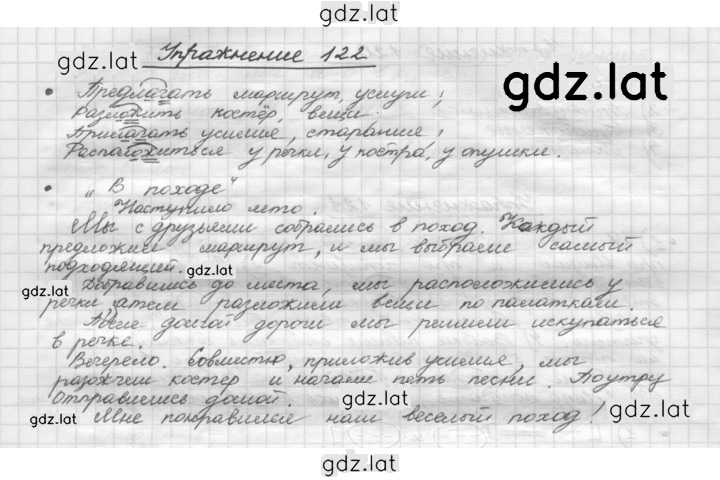 gdz.lat
Упражнение 122
gdz.lat
gdz.lat
• Предлагать маршрут, услуги;
Разложить костёр, вещи.
Прилагать усилия, старания;
Расположиться у речки, у костра, у опушки.
• „В походе"
Наступило лето.
Мы с друзьями собрались в поход. Каждый
предложил маршрут, и мы выбрали самый
подходящий.
gdz.lat
Добравшись до места, мы расположились у
gdz.lat
речки, затем разложили вещи по палаткам.
После долгой дороги мы решили искупаться
в речке.
Вечерело. Совместно, приложив усилия, мы
разожгли костёр и начали петь песни. Поутру
отправились домой.
gdz.lat
gdz.lat
Мне понравился наш весёлый поход!
gdz.lat
gdz.lat